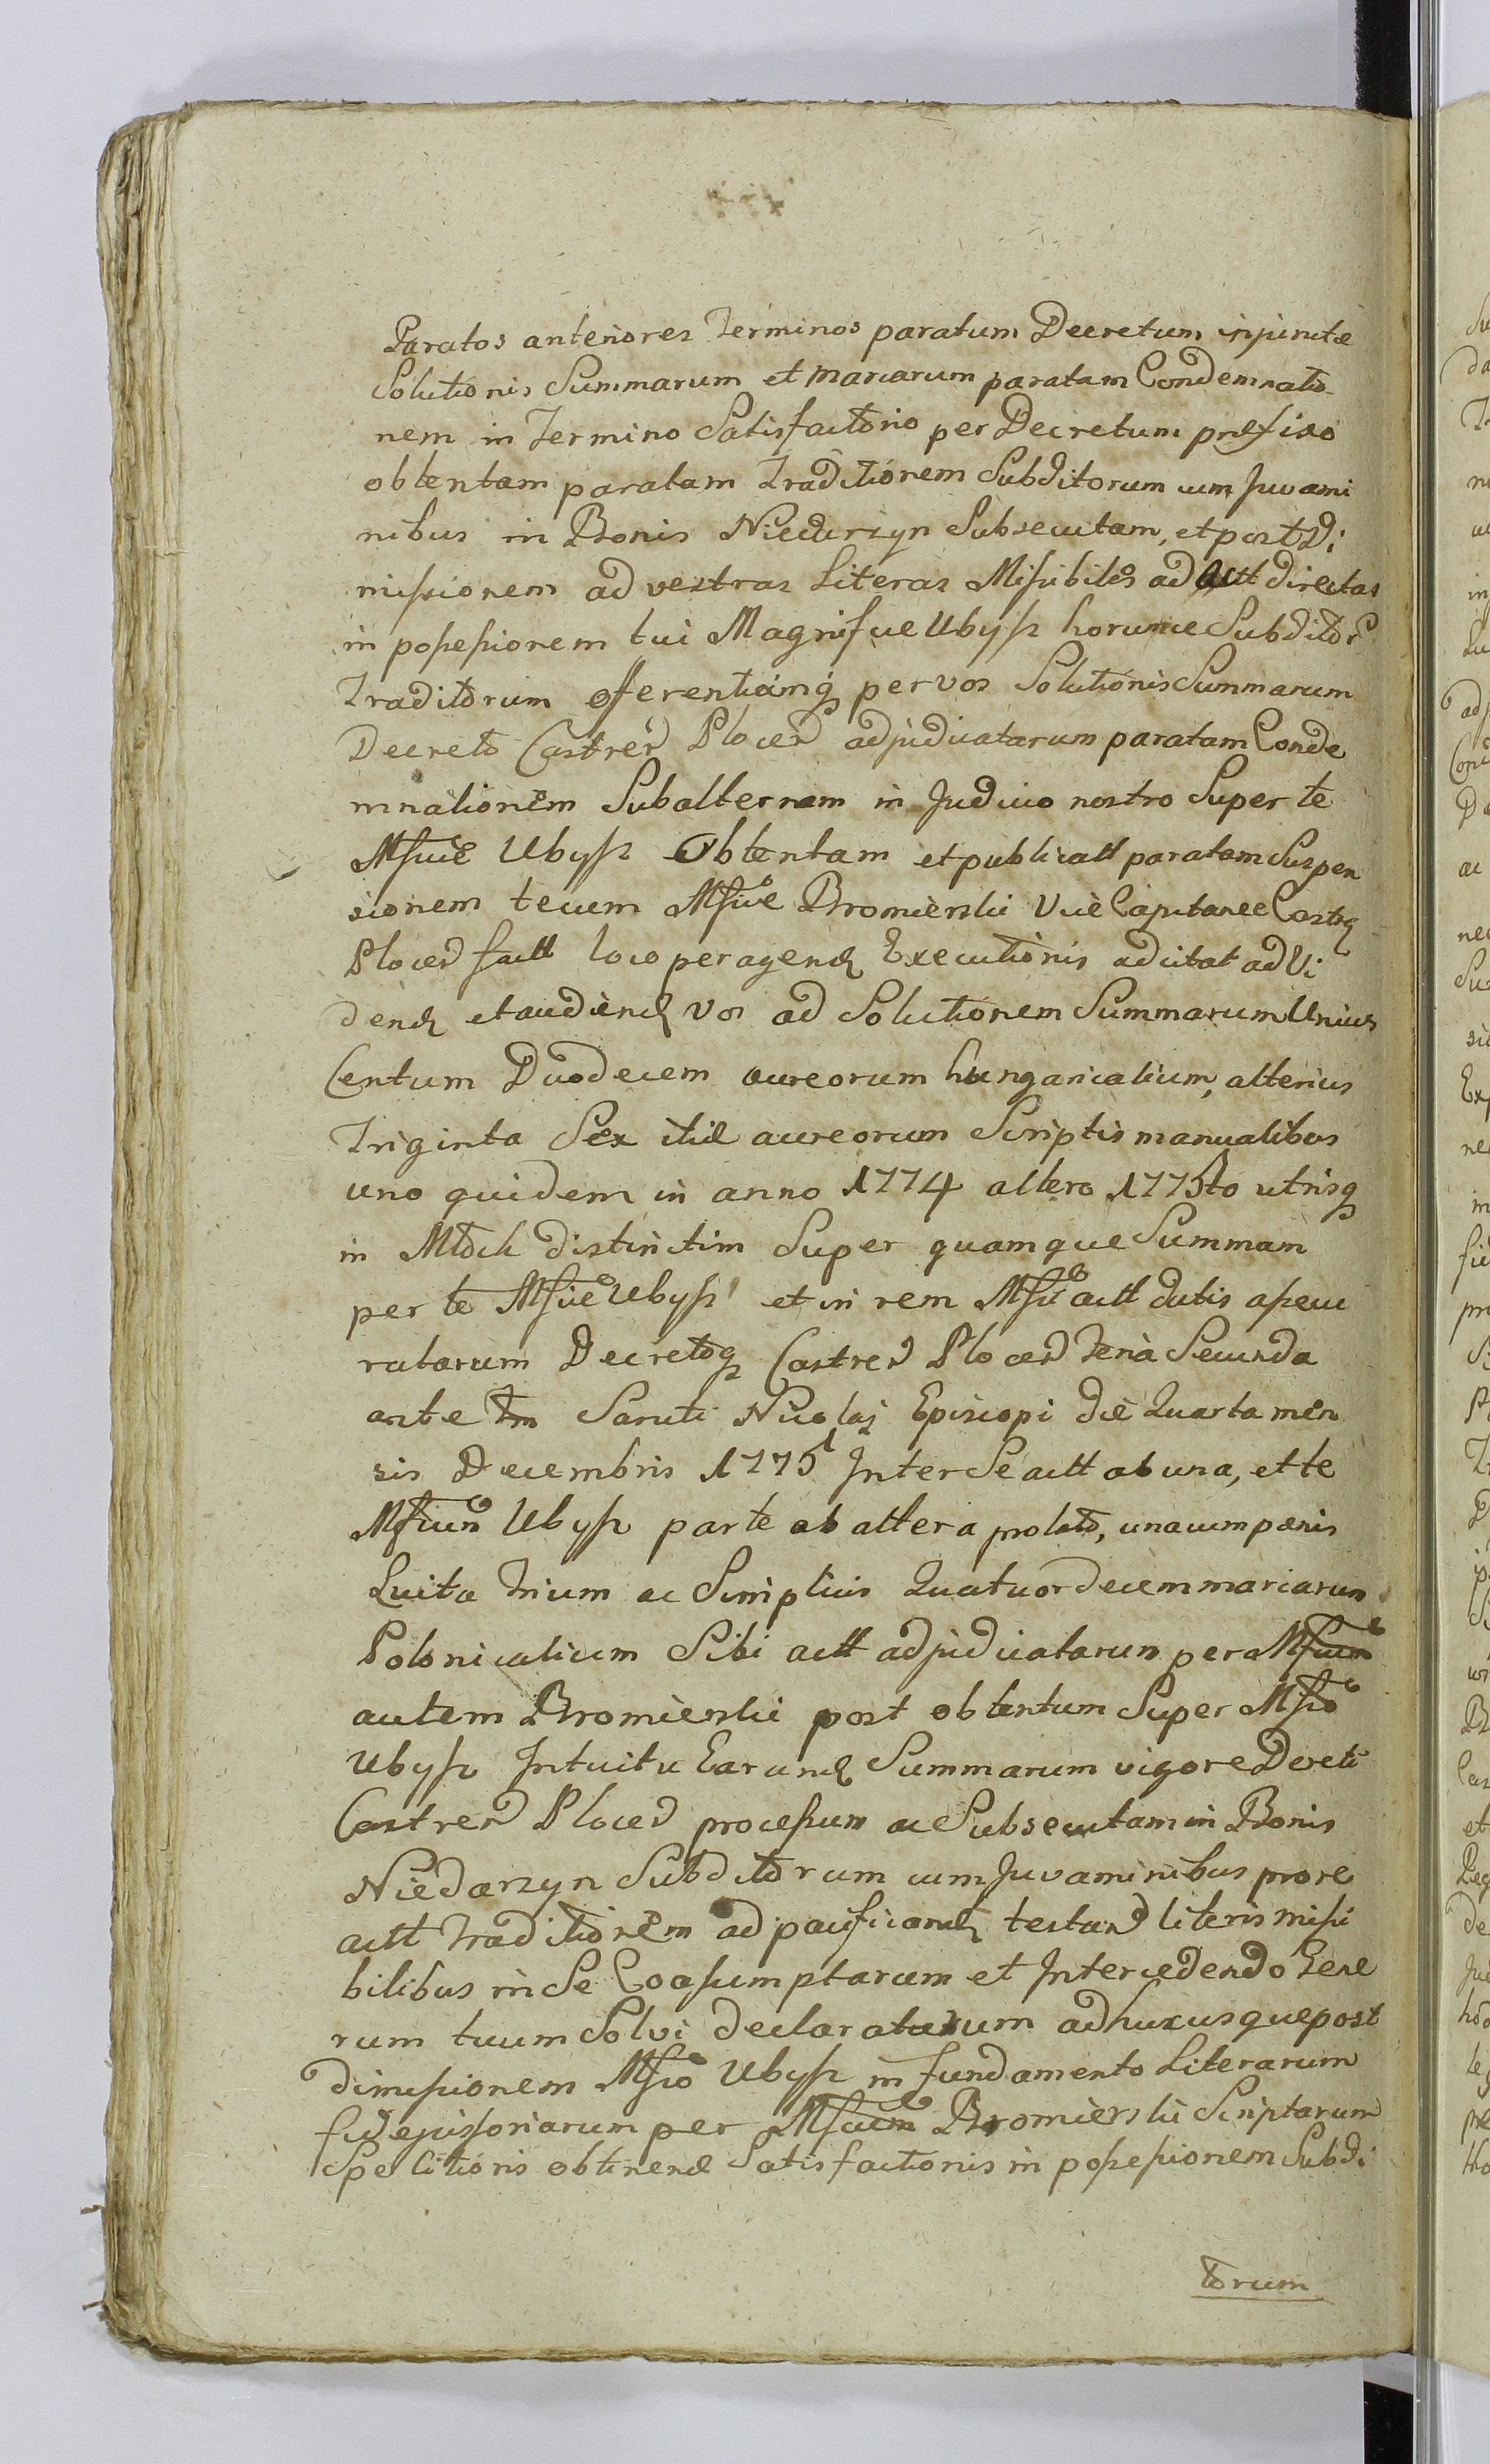 Paratos anteriores Terminos paratum Decretum injunctæ
Solutionis Summarum et marcarum paratam Condemnatio-
nem in Termino Satisfactorio per Decretum præfixo
obtentam paratam Traditionem Subditorum cum Juvami
nibus in Bonis Niedarzyn Subsecutam, et post Di
missionem ad vestras Literas Missibiles ad Act directas
in possessionem tui Magnifce Ubysz horumce Subditor
Traditorum offerentiamq per vos Solutionis Summarum
Decreto Castren Plocen adjudicatarum paratam Conde
mnationem Subalternam in Judicio nostro Super te
Mfice Ubysz Obtentam et publicatt paratam Suspen
sionem tecum Mfice Bromierski Vice Capitanee Castr
Plocen factt loco peragend Executionis adcitat ad Vi
dend et audiend vos ad Solutionem Summarum Unius
Centum Duodecem aureorum hungaricalium, alterius
Triginta Sex itid aureorum Scriptis manualibus
uno quidem in anno 1774 altero 1775to utrisq
in Mtoch distinctim Super quamque Summam
per te Mfice Ubysz et in rem Mfic actt datis assecu
ratarum Decretoq Castren Plocen Feria Secunda
ante Fm Sancti Nicolaj Episcopi die Quarta men
sis Decembris 1775 Inter Se actt ab una, et te
Mficum Ubysz parte ab altera prolato, unacum pœnis
Luita trium ac Simplicis Quatuordecem marcarum
Polonicalium Sibi actt adjudicatarum per Mficum
autem Bromierski post obtentum Super Mfico
Ubysz Intuitu Earund Summarum vigore Decreti
Castren Plocen processum ac Subsecutam in Bonis
Niedarzyn Subditorum cum Juvaminibus pro re
actt Traditionem ad pacificand testan literis missi
bilibus in Se Coassumptarum et Intercedendo Gene
rum tuum Solvi declaratarum adhucusque post
dimissionem Mfico Ubysz in fundamento Literarum
fidejussoriarum per Mficum Bromierski Scriptarum
Spe citioris obtinendæ Satisfactionis in possessionem Subdi
torum